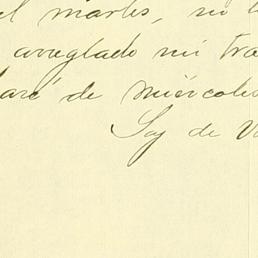 el martes, no t
arreglado mi tra
aré de miércoles
Soy de V